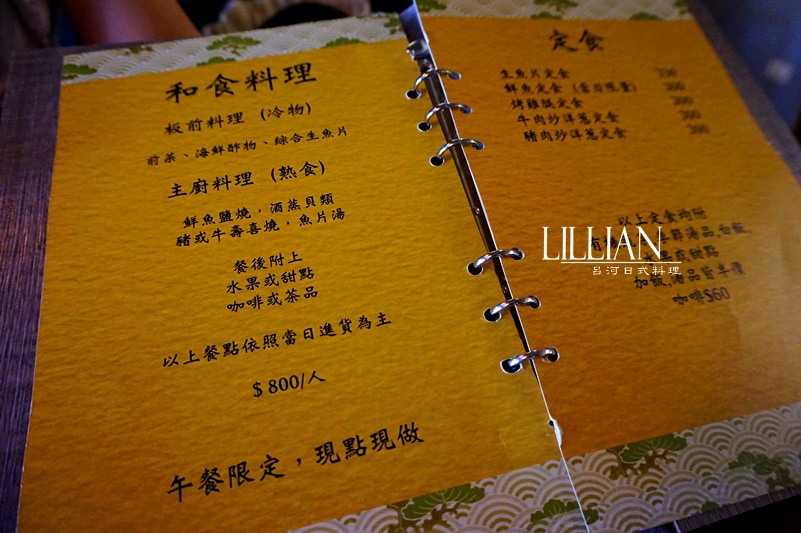 和食料理
板前料理 (冷物)
前菜、海鮮酢物、綜合生魚片
主廚料理 (熟食)
鮮魚鹽燒，酒蒸貝類
豬或牛壽喜燒，魚片湯
餐後附上
水果或甜點
咖啡或茶品
以上餐點依照當日進貨為主
$ 800/人
午餐限定，現點現做
定食
生魚片定食 330
鮮魚定食 (當日限量) 300
烤雞腿定食 300
牛肉炒洋蔥定食 300
豬肉炒洋蔥定食 300
以上定食均附
有機 節湯品.白飯
水果或甜點
加飯.湯品皆半價
咖啡$60
LILLIAN
呂河日式料理